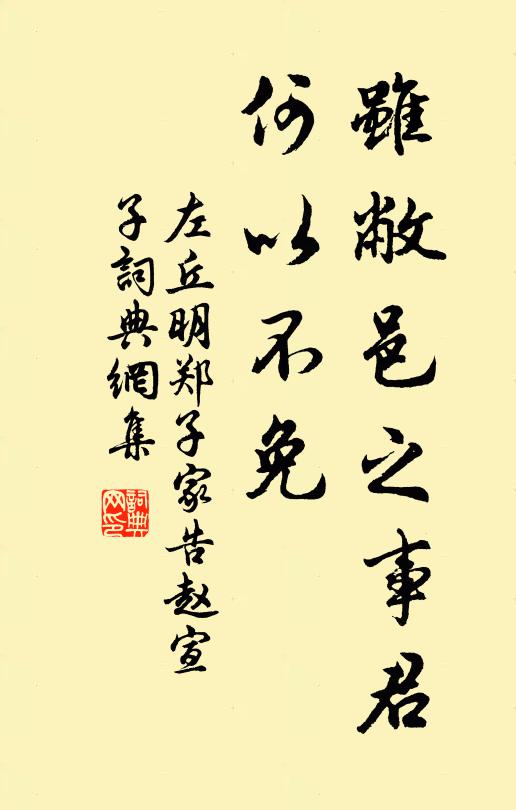 雖敝邑之事君
何以不免
左丘明郑子家告赵宣
子詞典網集
詞典
网印